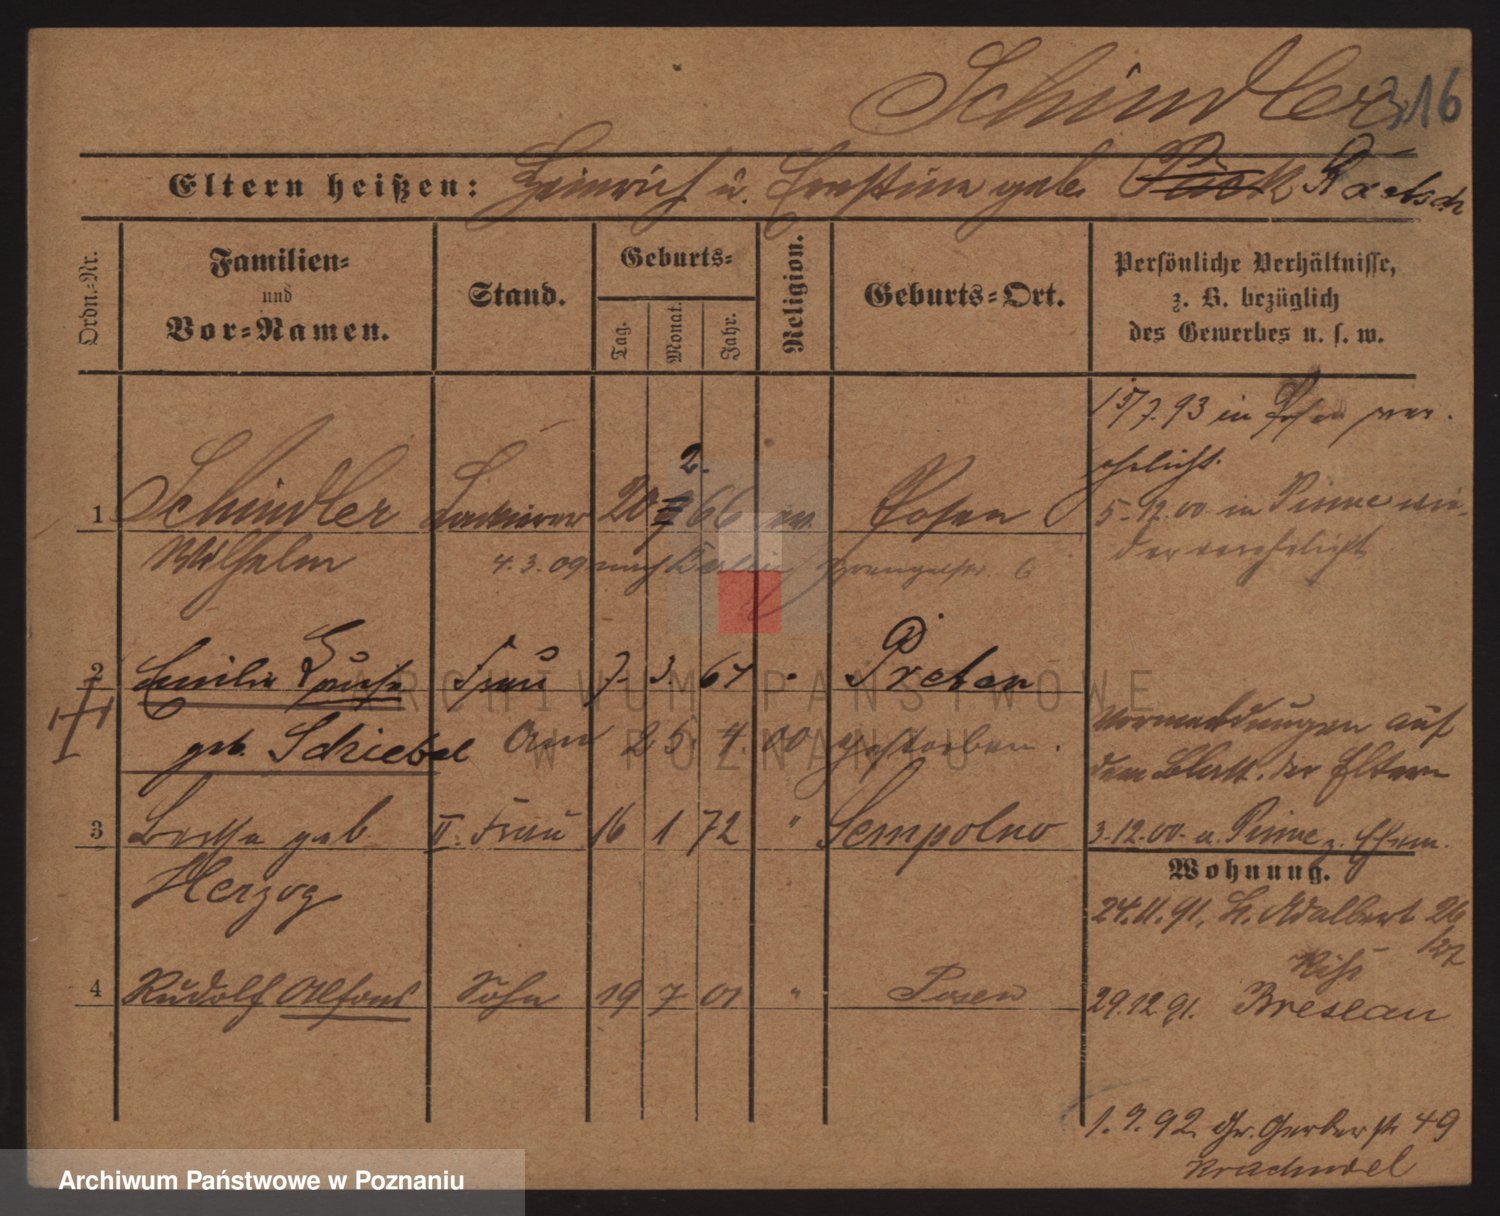 Schindler 316
Eltern heißen: Heinrich u. Ernestine geb. Kretsch
Ordn.-Nr.
Familien-
und
Vor-Namen.
Stand.
Geburts-
Tag.
Monat.
Jahr.
Religion.
Geburts-Ort.
Persönliche Verhältnisse,
z. B. bezüglich
des Gewerbes u. s. w.
15/7.93 in Posen ver-
ehelicht.
1 Schindler Lackierer 20 2. 66 ev. Posen
5.12.00 in Pinne wie-
Wilhelm
4.3.09 nach Berlin Wrangelstr. 6
der verehelicht
2 Emilie Luise Frau 7. 3. 67 "
geb. Schiebel Am 25. 4. 00 gestorben.
Vormerkungen auf
dem Blatt. der Eltern
3 Bertha geb II. Frau 16 1 72 " Sempolno
3.12.00. a. Pinne z. Ehem.
Herzog
Wohnung.
24.11.91. St. Adalbert 26/27
4 Rudolf Alfons Sohn 19 7 01 " Posen
29.12.91. Breslau
1.9.92 Gr. Gerberstr 49
ARCHIWUM PAŃSTWOWE
W POZNANIU
Archiwum Państwowe w Poznaniu